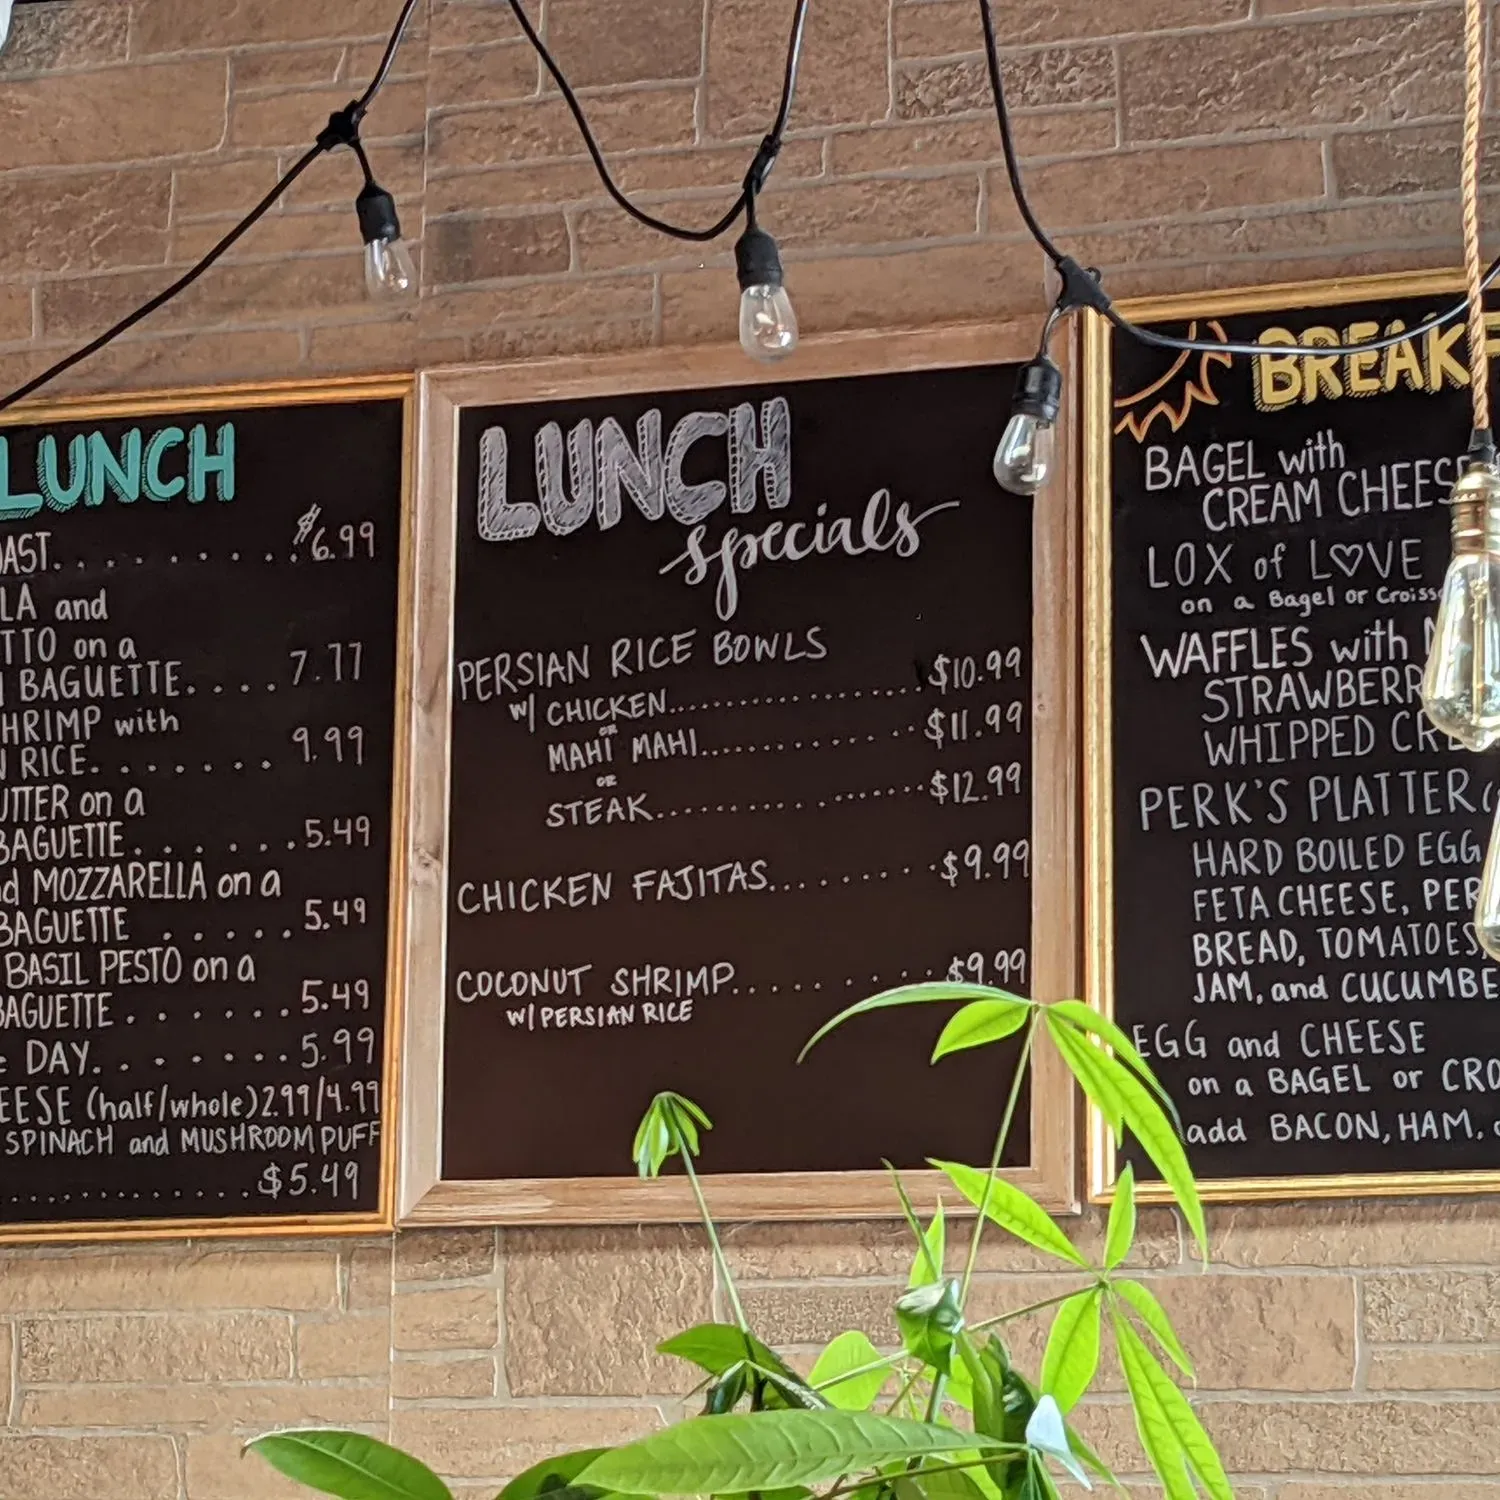 LUNCH
$6.99
and
on a
BAGUETTE. . . . 7.77
with
RICE. . . . . . . 9.99
on a
BAGUETTE. . . . . . . 5.49
MOZZARELLA on a
BAGUETTE . . . . . 5.49
BASIL PESTO on a
BAGUETTE. . . . . . 5.49
DAY. . . . . . . 5.99
(half/whole) 2.99/4.99
SPINACH and MUSHROOM PUFF
$5.49
LUNCH
specials
PERSIAN RICE BOWLS
w/ CHICKEN.................... $10.99
OR
MAHI MAHI................ $11.99
OR
STEAK................... $12.99
CHICKEN FAJITAS......... $9.99
COCONUT SHRIMP......... $9.99
w/ PERSIAN RICE
BAGEL with
CREAM
LOX of L♡VE
on a Bagel or
WAFFLES with
WHIPPED
PERK'S PLATTER
HARD BOILED EGG
FETA CHEESE,
BREAD, TOMATOES,
JAM, and
EGG and CHEESE
on a BAGEL or
add BACON, HAM,